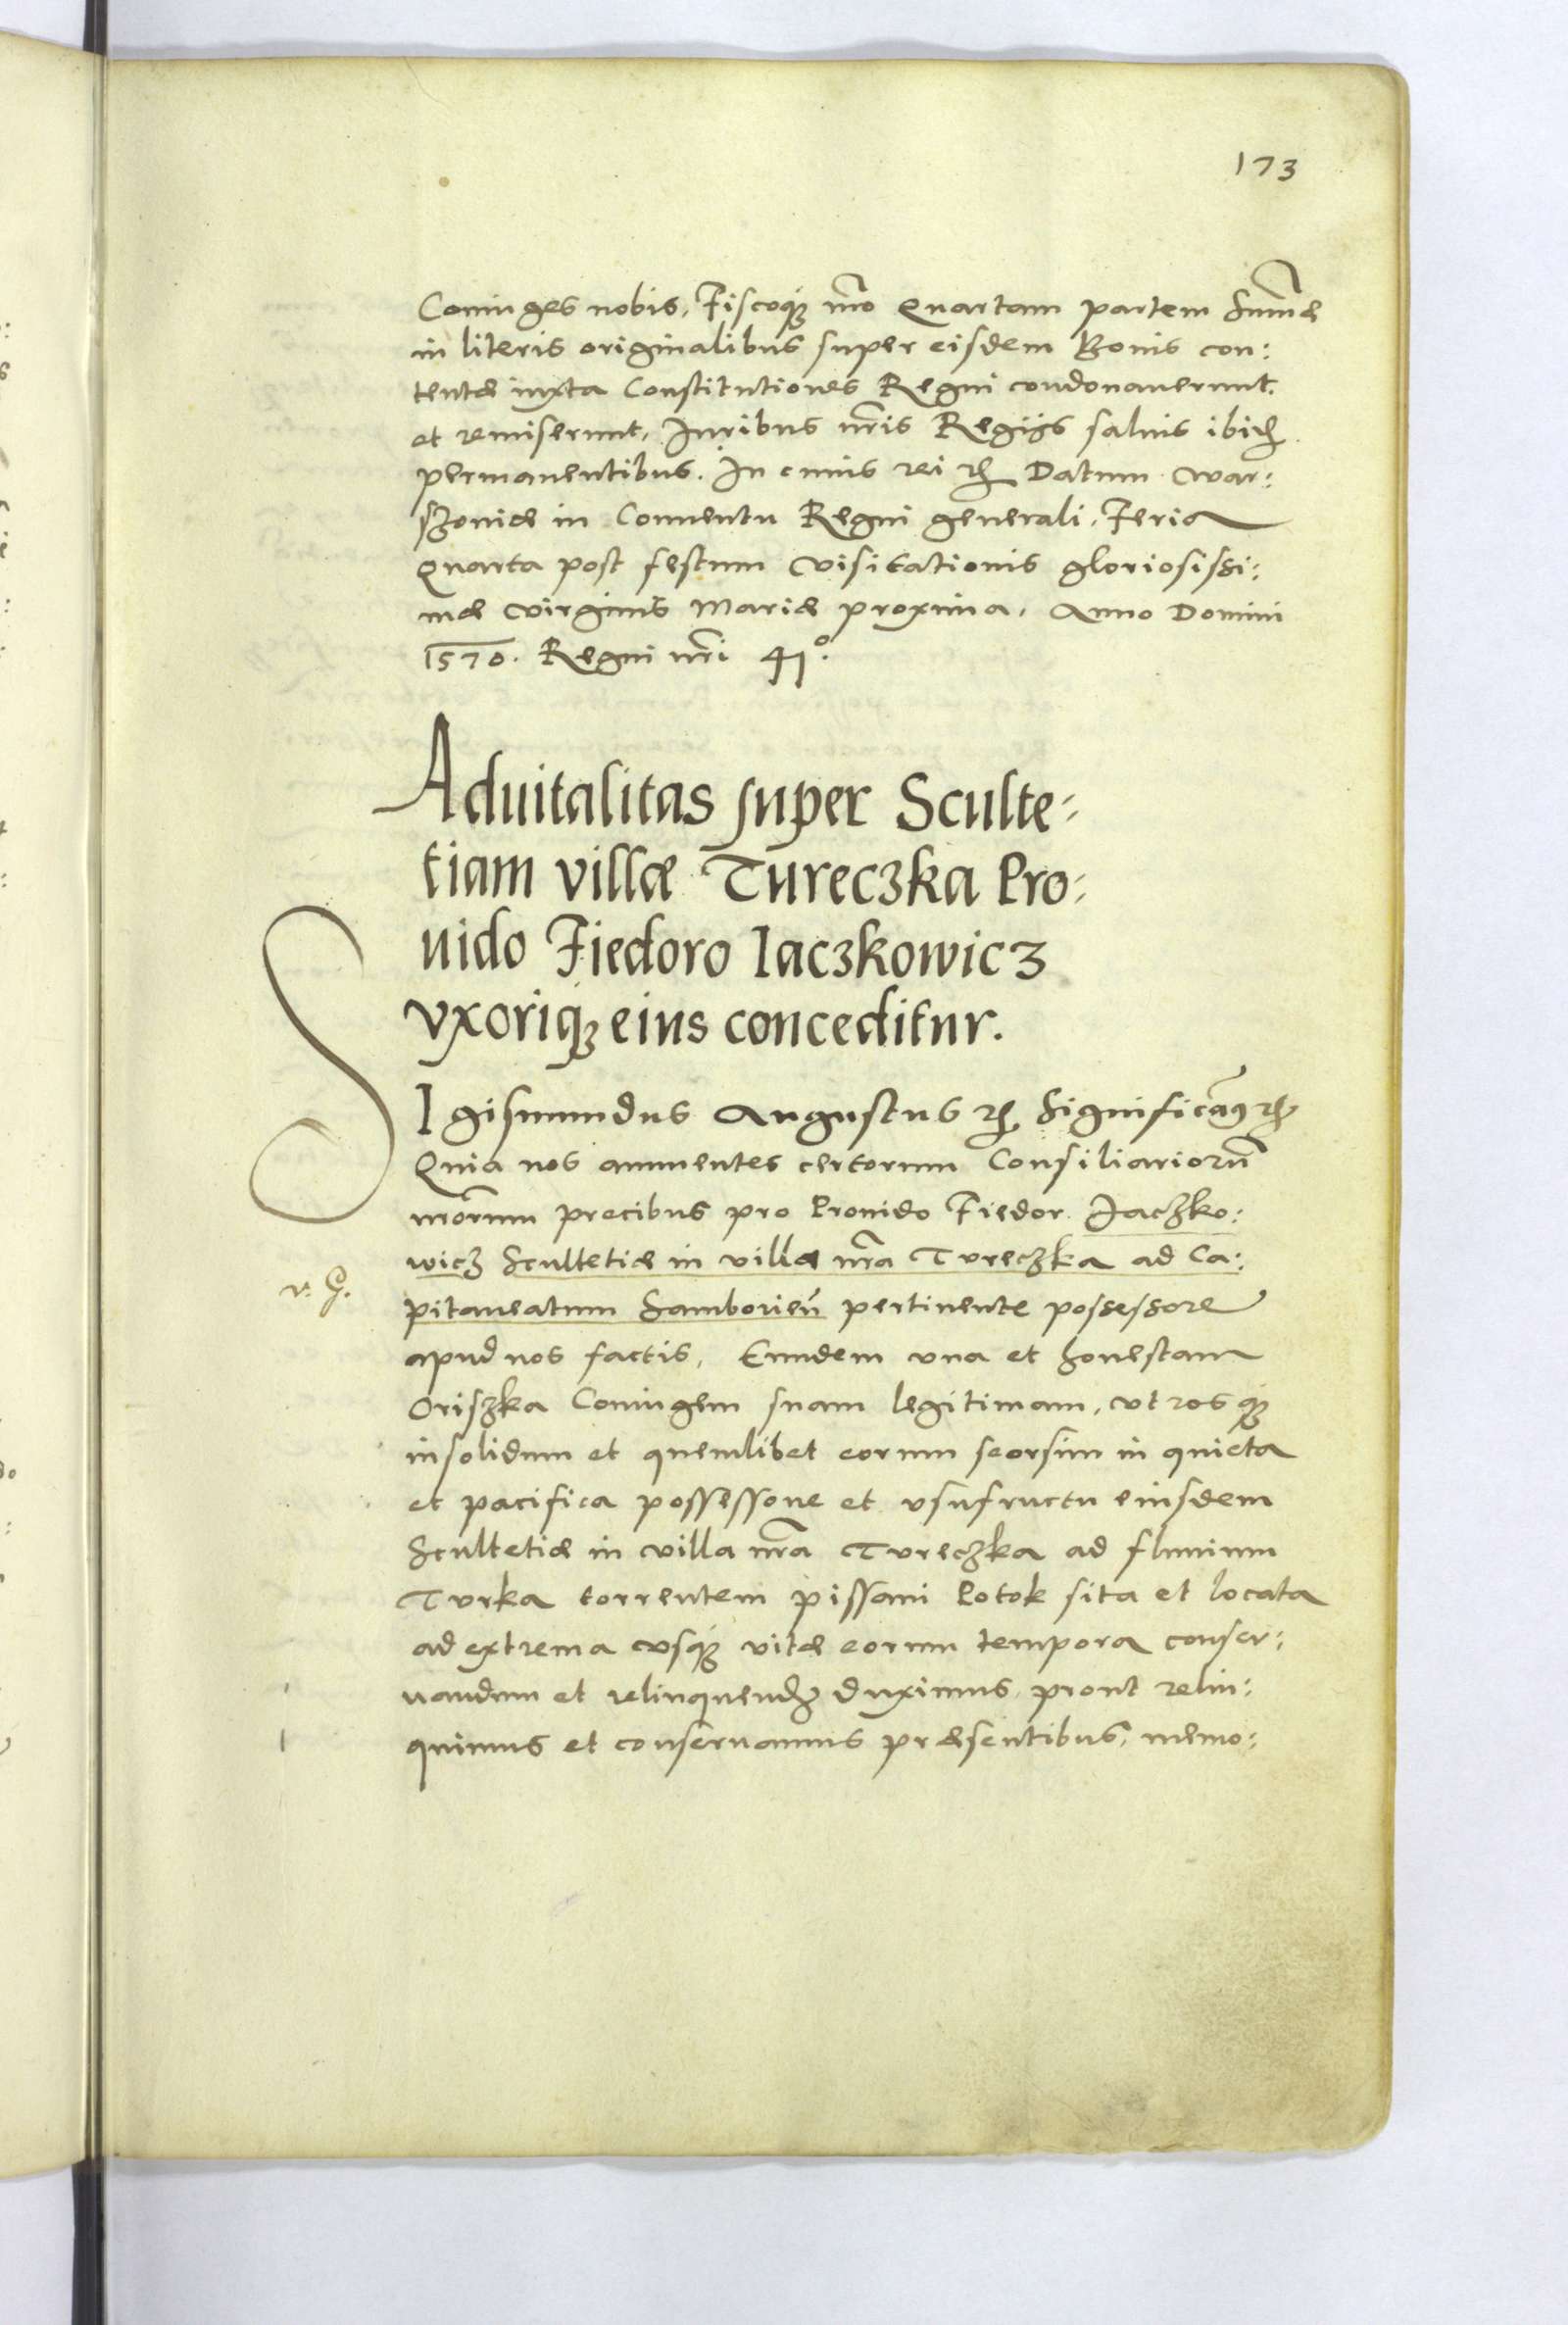 173
Coniuges nobis, Fiscoqȝ nr̃o Quartam partem Summæ
in literis originalibus super eisdem Bonis con:
tentæ iuxta Constitutiones Regni condonauerunt.
et remiserunt, Iuribus nr̃is Regijs saluis ibid
permanentibus. In cuius rei ꝛc Datum War:
szoniæ in Conuentu Regni generali, Feria
Quarta post festum Visitationis gloriosissi:
mæ Virginis Mariæ proxima, Anno Domini
1570. Regni nr̃i 41º.
Aduitalitas super Sculte-
tiam villæ Tureczka Pro-
uido Fiedoro Iaczkowicz
vxoriqȝ eius conceditur.
SIgismundus Augustus ꝛc Significamꝰ ꝛc
Quia nos annuentes certorum Consiliariorũ
nr̃orum precibus pro Prouido Fiedor Jaczko:
wicz Scultetiæ in villa nr̃a Tureczka ad Ca:
v. G.
pitaneatum Samborieñ pertinente possessore
apud nos factis, Eundem vna et honestam
Oriszka Coniugem suam legitimam, vtrosqȝ
insolidum et quemlibet eorum seorsim in quieta
et pacifica possessone et vsufructu eiusdem
Scultetiæ in villa nr̃a Tureczka ad fluuium
Turka torrentem pissani Potok sita et locata
ad extrema vsqȝ vitæ eorum tempora conser:
uandum et relinquend duximus, prout relin:
quimus et conseruamus præsentibus, nemo: